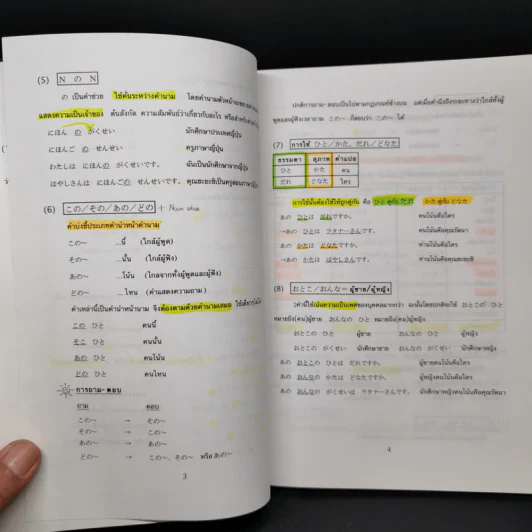 (5) N の N
の เป็นคำช่วย ใช้คั่นระหว่างคำนาม
แสดงความเป็นเจ้าของ ต้นสังกัด ความสัมพันธ์ว่าเกี่ยวกับอะไร
にほん の がくせい นักศึกษาประเทศญี่ปุ่น
にほんご の せんせい ครูภาษาญี่ปุ่น
わたしは にほんの がくせいです。 ฉันเป็นนักศึกษาญี่ปุ่น
はやしさんは にほんごの せんせいです。
(6) この/その/あの/どの + Noun
คำบ่งชี้ประเภทคำนำหน้าคำนาม
この~ ...นี้ (ใกล้ผู้พูด)
その~ ...นั้น (ใกล้ผู้ฟัง)
あの~ ...โน้น (ไกลจากทั้งผู้พูดและผู้ฟัง)
どの~ ...ไหน (คำแสดงคำถาม)
คำเหล่านี้เป็นคำนำหน้านาม จึงต้องตามด้วยคำนามเสมอ
この ひと คนนี้
その ひと คนนั้น
あの ひと คนโน้น
どの ひと คนไหน
การถาม-ตอบ
ถาม ตอบ
この~ → その~
その~ → この~
あの~ → あの~
どの~ → この~、その~ หรือ あの~
3
ปกติการถาม-ตอบเป็นไปตามกฎเกณฑ์ข้างบน
(7) การใช้ ひと/かた, だれ/どなた
ธรรมดา สุภาพ คำแปล
ひと かた คน
だれ どなた ใคร
การใช้นั้นต้องใช้ให้ถูกคู่กัน คือ ひと คู่กับ だれ かた คู่กับ どなた
あの ひとは だれですか。 คนโน้นคือใคร
→あの ひとは ラタナーさんです。 คนโน้นคือคุณรัตนา
あの かたは どなたですか。 ท่านโน้นคือใคร
→あの かたは はやしさんです。 ท่านโน้นคือคุณฮะยะชิ
(8) おとこ/おんな = ผู้ชาย/ผู้หญิง
おとこの ひと ผู้ชาย おんなの ひと ผู้หญิง
おとこの がくせい นักศึกษาชาย おんなの がくせい นักศึกษาหญิง
あの おとこの ひとは だれですか。 ผู้ชายคนโน้นคือใคร
あの おんなの かたは どなたですか。 ผู้หญิงคนโน้นคือใคร
あの おんなの がくせいは ラタナーさんです。 นักศึกษาหญิงคนโน้นคือคุณรัตนา
4